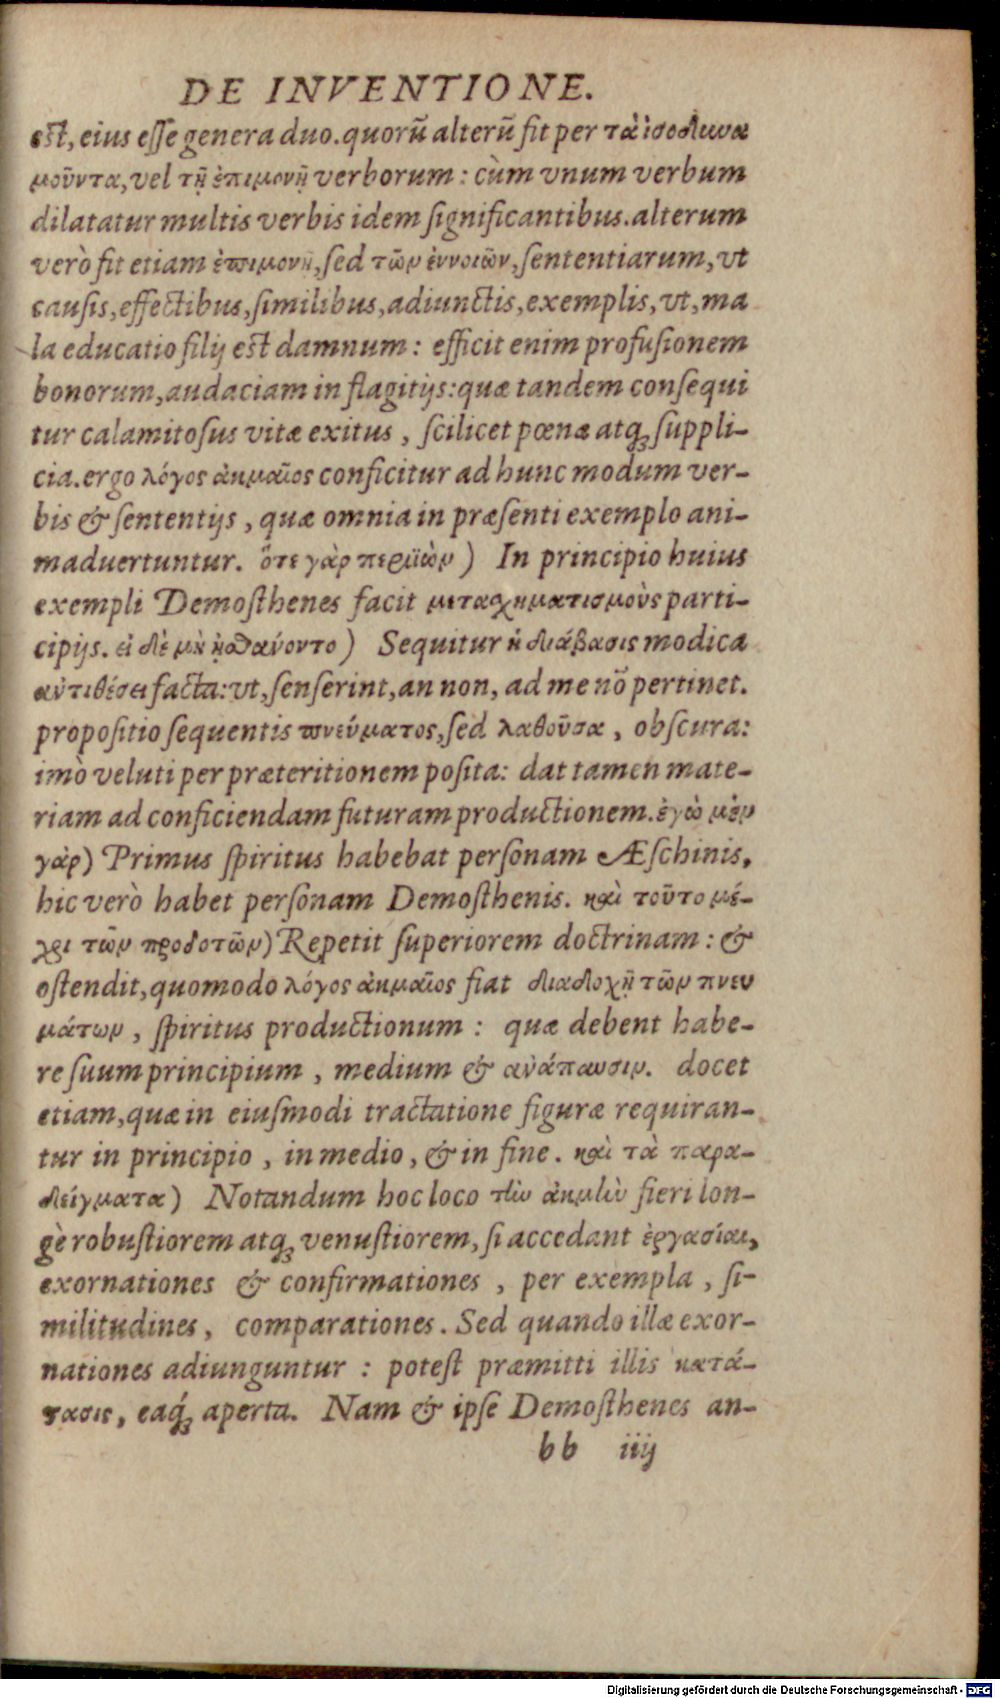 DE INVENTIONE.
est, eius esse genera duo. quorũ alterũ fit per τὰ ἰσοδυνα
μοῦντα, vel τῇ ἐπιμονῇ verborum: cùm vnum verbum
dilatatur multis verbis idem significantibus. alterum
verò fit etiam ἐπιμονῇ, sed τῶν ἐννοιῶν, sententiarum, vt
causis, effectibus, similibus, adiunctis, exemplis, vt, ma
la educatio filij est damnum: efficit enim profusionem
bonorum, audaciam in flagitijs: quæ tandem consequi
tur calamitosus vitæ exitus, scilicet pœnæ atq; suppli-
cia. ergo λόγος ἀκμαῖος conficitur ad hunc modum ver-
bis & sententijs, quæ omnia in præsenti exemplo ani-
maduertuntur. ὅτε γὰρ περιϊὼν) In principio huius
exempli Demosthenes facit μετασχηματισμοὺς parti-
cipijs. εἰ δὲ μὴ ᾐσθάνοντο) Sequitur ἡ διάβασις modica
ἀντιθέσει facta: vt, senserint, an non, ad me nõ pertinet.
propositio sequentis πνεύματος, sed λαθοῦσα, obscura:
imò veluti per præteritionem posita: dat tamen mate-
riam ad conficiendam futuram productionem. ἐγὼ μὲν
γὰρ) Primus spiritus habebat personam Æschinis,
hic verò habet personam Demosthenis. καὶ τοῦτο μέ-
χρι τῶν προδοτῶν) Repetit superiorem doctrinam: &
ostendit, quomodo λόγος ἀκμαῖος fiat διαδοχῇ τῶν πνευ
μάτων, spiritus productionum: quæ debent habe-
re suum principium, medium & ἀνάπαυσιν. docet
etiam, quæ in eiusmodi tractatione figuræ requiran-
tur in principio, in medio, & in fine. καὶ τὰ παρα-
δείγματα) Notandum hoc loco τὴν ἀκμὴν fieri lon-
gè robustiorem atq; venustiorem, si accedant ἐργασίαι,
exornationes & confirmationes, per exempla, si-
militudines, comparationes. Sed quando illæ exor-
nationes adiunguntur: potest præmitti illis κατά-
στασις, eaq́; aperta. Nam & ipse Demosthenes an-
bb iiij
Digitalisierung gefördert durch die Deutsche Forschungsgemeinschaft - DFG